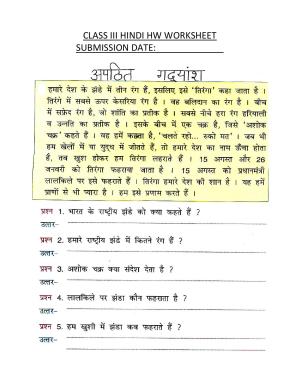 CLASS III HINDI HW WORKSHEET
SUBMISSION DATE:
अपठित गद्यांश
हमारे देश के झंडे में तीन रंग हैं, इसलिए इसे 'तिरंगा' कहा जाता है ।
तिरंगे में सबसे ऊपर केसरिया रंग है । वह बलिदान का रंग है । बीच
में सफ़ेद रंग है, जो शांति का प्रतीक है । सबसे नीचे हरा रंग हरियाली
व उन्नति का प्रतीक है । इसके बीच में एक चक्र है, जिसे 'अशोक
चक्र' कहते हैं । यह हमें कहता है, 'चलते रहो... रुको मत' । जब भी
हम खेलों में या युद्ध में जीतते हैं, तो हमारे देश का नाम ऊँचा होता
है, तब खुश होकर हम तिरंगा लहराते हैं । 15 अगस्त और 26
जनवरी को तिरंगा फहराया जाता है । 15 अगस्त को प्रधानमंत्री
लालकिले पर इसे फहराते हैं । तिरंगा हमारे देश की शान है । यह हमें
प्राणों से भी प्यारा है । हम इसे प्रणाम करते हैं ।
प्रश्न 1. भारत के राष्ट्रीय झंडे को क्या कहते हैं ?
उत्तर-
प्रश्न 2. हमारे राष्ट्रीय झंडे में कितने रंग हैं ?
उत्तर-
प्रश्न 3. अशोक चक्र क्या संदेश देता है ?
उत्तर-
प्रश्न 4. लालकिले पर झंडा कौन फहराता है ?
उत्तर-
प्रश्न 5. हम खुशी में झंडा कब फहराते हैं ?
उत्तर-